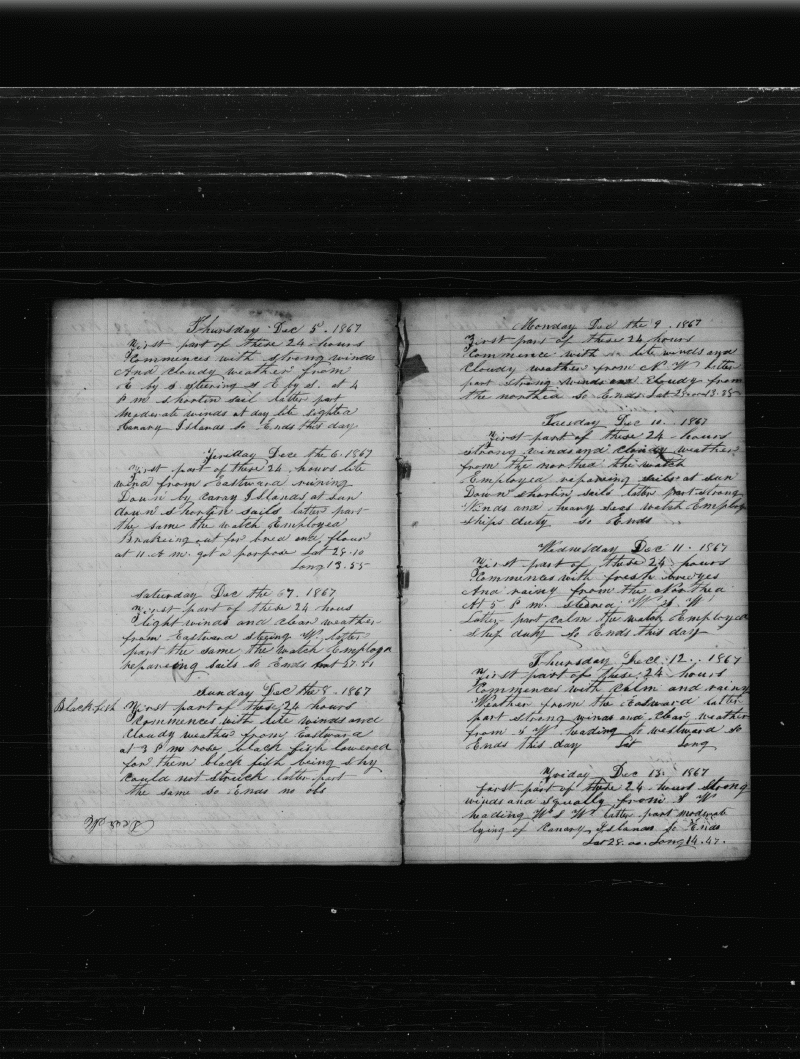 Thursday Dec 5. 1867
First part of these 24 hours
Commences with strong winds
And cloudy weather from
E by S steering S E by S. at 4
P M shorten sail latter part
moderate winds at day lite sighted
Canary Islands So Ends this day
Friday Dec the 6. 1867
First part of these 24 hours lite
wind from Eastward runing
Down by Canay Islands at sun
down shorten sails latter part
the same the watch Employed
Brakeing out for bred and flour
at 11 A M. got a porpose Lat 28.10
Long 13.55
Saturday Dec the 7. 1867
First part of these 24 hours
light winds and clear weather
from Eastward steering W. latter
part the same the watch Employd
reparing sails So Ends Lat 27.51
Sunday Dec the 8. 1867
Blackfish First part of these 24 hours
Commences with lite winds and
Cloudy weather from Eastward
at 3 P M rose black fish lowered
for them black fish being shy
could not strick latter part
the same So Ends no obs
Monday Dec the 9. 1867
First part of these 24 hours
Commence with lite winds and
Cloudy weather from N W latter
part strong winds and Cloudy from
the northed So Ends Lat 28 13.35
Tuesday Dec 10. 1867
First part of these 24 hours
strong winds and cloudy weather
from the northed the watch
Employed reparing sails at sun
Down shorten sails latter part strong
Winds and heavy seas watch Employ
ships duty So Ends
Wednesday Dec 11. 1867
First part of these 24 hours
Commences with fresh breezes
And rainy from the Northed
At 5 P M. steered W S W
Latter part calm the watch Employed
Ship duty So Ends this day
Thursday Dec 12. 1867
First part of these 24 hours
Commences with calm and rainy
Weather from the Eastward latter
part strong winds and clear weather
from S W heading to westward So
Ends this day Lat Long
Friday Dec 13. 1867
First part of these 24 hours strong
winds and squally from S W
heading W S W latter part moderate
lying of Canary Islands So Ends
Lat 28.00. Long 14.47.